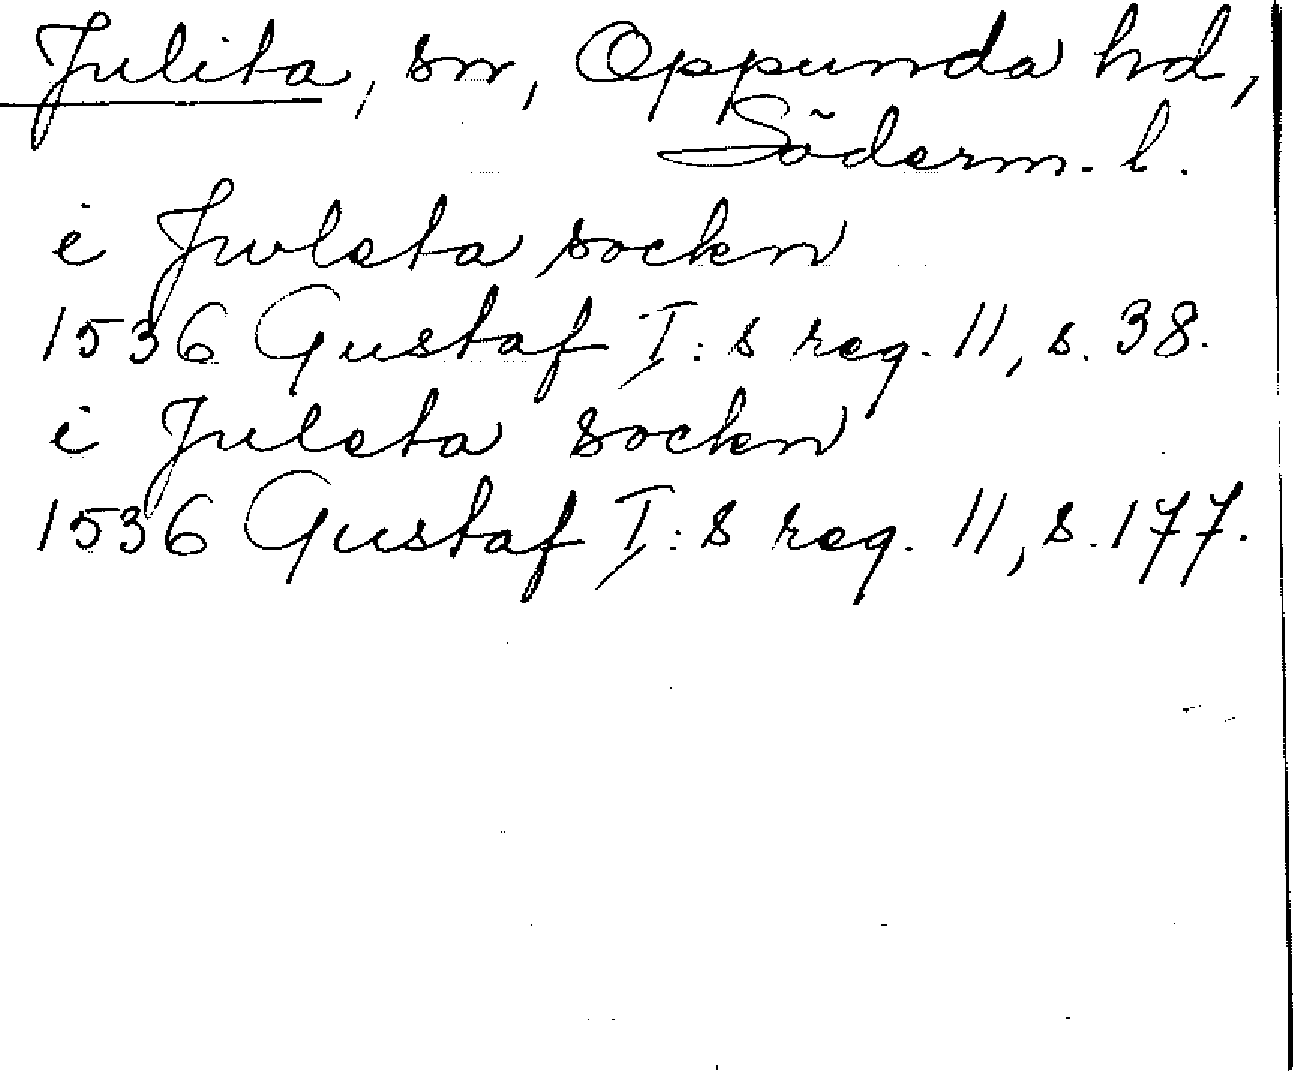 Julita, sn, Oppunda hd,
Söderm. l.
i Jwleta sockn
1536 Gustaf I:s reg. 11, s. 38.
i Juleta sockn
1536 Gustaf I:s reg. 11, s. 177.